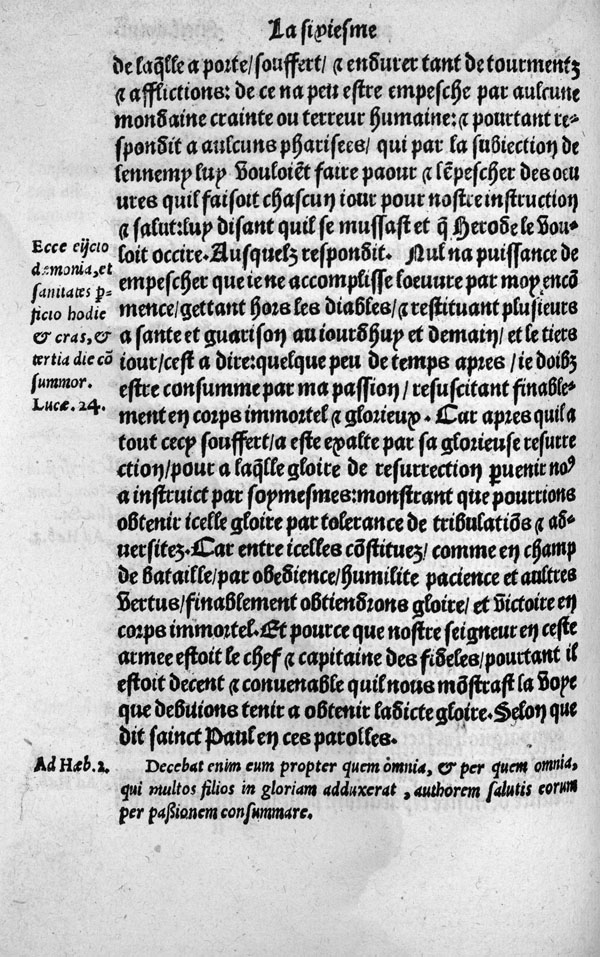 La sixiesme
de laq̃lle a porte/souffert/ ⁊ endurer tant de tourmentz
⁊ afflictions: de ce na peu estre empesche par aulcune
mondaine crainte ou terreur humaine: ⁊ pourtant re-
spondit a aulcuns pharisees/ qui par la subiection de
lennemy luy vouloiẽt faire paour ⁊ lẽpescher des oeu
ures quil faisoit chascun iour pour nostre instruction
⁊ salut: luy disant quil se mussast et q̃ Herode le vou-
loit occire. Ausquelz respondit. Nul na puissance de
empescher que ie ne accomplisse loeuure par moy encõ
mence/gettant hors les diables/ ⁊ restituant plusieurs
a sante et guarison au iourdhuy et demain/ et le tiers
iour/cest a dire: quelque peu de temps apres/ ie doibz
estre consumme par ma passion/ resuscitant finable-
ment en corps immortel ⁊ glorieux. Car apres quil a
tout cecy souffert/a este exalte par sa glorieuse resurre
ction/pour a laq̃lle gloire de resurrection ꝑuenir noꝰ
a instruict par soymesmes: monstrant que pourrions
obtenir icelle gloire par tolerance de tribulatiõs ⁊ ad-
uersitez. Car entre icelles cõstituez/ comme en champ
de bataille/par obedience/humilite pacience et aultres
vertus/finablement obtiendrons gloire/ et victoire en
corps immortel. Et pource que nostre seigneur en ceste
armee estoit le chef ⁊ capitaine des fideles/pourtant il
estoit decent ⁊ conuenable quil nous mõstrast la voye
que debuions tenir a obtenir ladicte gloire. Selon que
dit sainct Paul en ces parolles.
Ecce eijcio
dæmonia, et
sanitates ꝑ-
ficio hodie
& cras, &
tertia die cõ
summor.
Lucæ. 24.
Ad Hæb. 2.
Decebat enim eum propter quem omnia, & per quem omnia,
qui multos filios in gloriam adduxerat, authorem salutis eorum
per paßionem consummare.